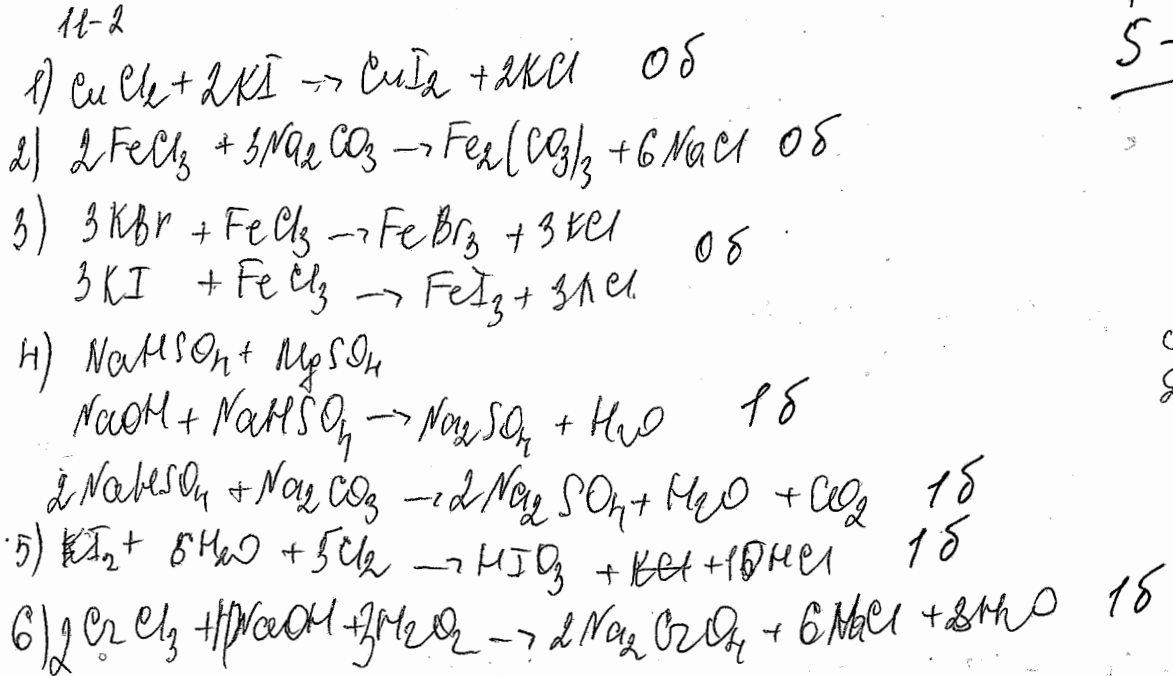 11-2
5-
1) CuCl₂ + 2KI → CuI₂ + 2KCl 0б
2) 2FeCl₃ + 3Na₂CO₃ → Fe₂(CO₃)₃ + 6NaCl 0б
3) 3KBr + FeCl₃ → FeBr₃ + 3KCl 0б
3KI + FeCl₃ → FeI₃ + 3KCl
4) NaHSO₄ + MgSO₄
NaOH + NaHSO₄ → Na₂SO₄ + H₂O 1б
2NaHSO₄ + Na₂CO₃ → 2Na₂SO₄ + H₂O + CO₂ 1б
5) I₂ + 5H₂O + 5Cl₂ → HIO₃ + KCl + 10HCl 1б
6) 2CrCl₃ + NaOH + 3H₂O₂ → 2Na₂CrO₄ + 6NaCl + 8H₂O 1б